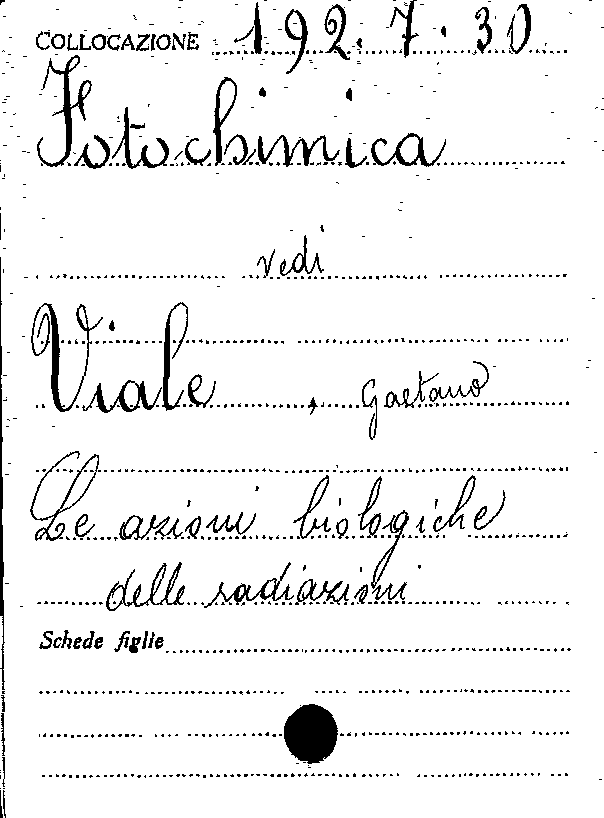 COLLOCAZIONE 192.7.30
Fotochimica
vedi
Viale, Gaetano
Le azioni biologiche
delle radiazioni
Schede figlie